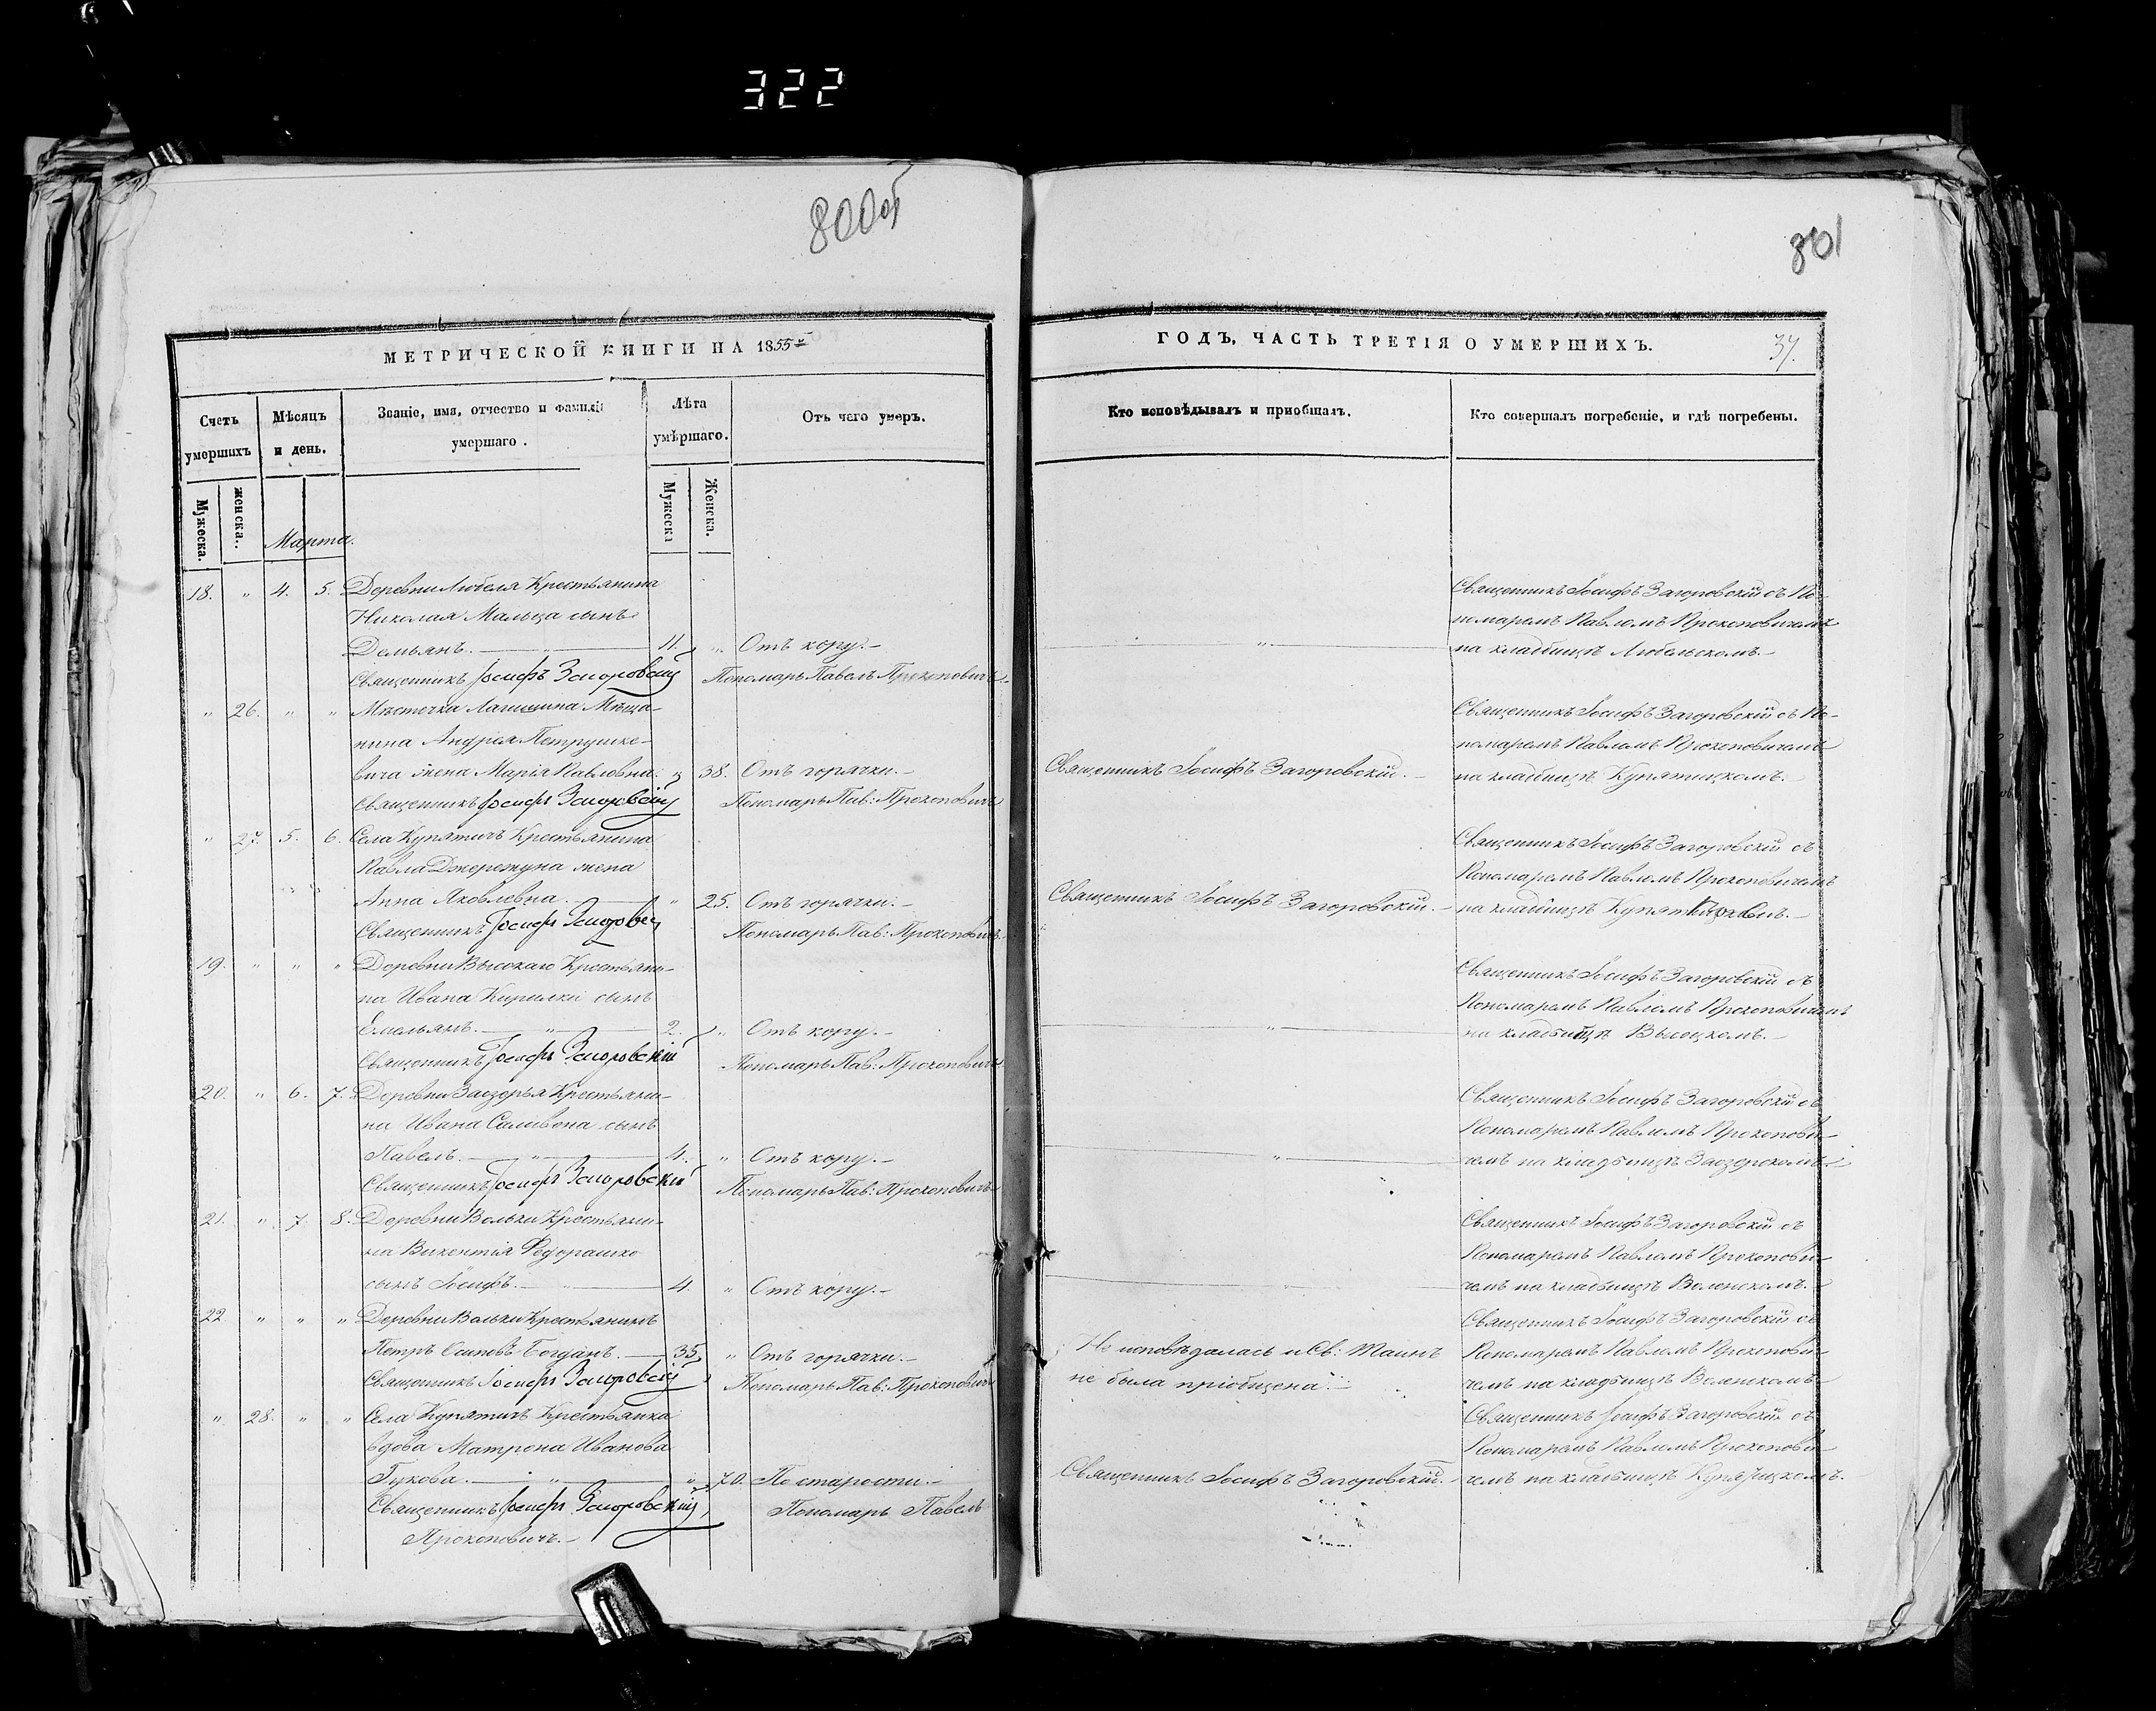 322
800об
801
МЕТРИЧЕСКОЙ КНИГИ НА 1855й
Счетъ умершихъ
Мѣсяцъ и день.
Званіе, имя, отчество и фамилія умершаго.
Лѣта умѣршаго.
Отъ чего умеръ.
Мужеска.
женска.
Мужеска
Женска.
Марта.
18. „ 4. 5. Деревни Любеля Крестьянина
Николая Мальца сынъ
Демьянъ. — „ — 11. „ Отъ кору.—
Священникъ Іосифъ Загоровскій Пономарь Павелъ Прокоповичъ.
„ 26. „ „ Мѣстечка Лагишина Мѣща-
нина Андрея Петрушке-
вича жена Марія Павловна. „ 38. Отъ горячки.—
Священникъ Іосифъ Загоровскій Пономарь Пав: Прокоповичъ
„ 27. 5. 6. Села Купятичъ Крестьянина
Павла Джережуна жена
Анна Яковлевна. — „ 25. Отъ горячки.—
Священникъ Іосифъ Загоровскій Пономарь Пав: Прокоповичъ.
19. „ „ „ Деревни Высокаго Крестьяни-
на Ивана Кирилки сынъ
Емельянъ. — „ — 2. „ Отъ кору.—
Священникъ Іосифъ Загоровскій Пономарь Пав: Прокоповичъ
20. „ 6. 7. Деревни Заозерья Крестьяни-
на Ивана Саливона сынъ
Павелъ. — „ — 4. „ Отъ кору.—
Священникъ Іосифъ Загоровскій Пономарь Пав: Прокоповичъ
21. „ 7. 8. Деревни Вольки Крестьяни-
на Викентія Федорашко
сынъ Іосифъ. — „ — 4. „ Отъ кору.—
22. „ „ „ Деревни Вольки Крестьянинъ
Петръ Осиповъ Богданъ. — 35. „ Отъ горячки.—
Священникъ Іосифъ Загоровскій Пономарь Пав: Прокоповичъ
„ 28. „ „ Села Купятичъ Крестьянка
вдова Матрона Иванова
Гукова. — „ — „ 70. По старости.—
Священникъ Іосифъ Загоровскій, Пономарь Павелъ
Прокоповичъ.—
ГОДЪ, ЧАСТЬ ТРЕТІЯ О УМЕРШИХЪ.
37.
Кто исповѣдывалъ и пріобщалъ.
Кто совершалъ погребеніе, и гдѣ погребены.
Священникъ Іосифъ Загоровскій съ По-
номаремъ Павломъ Прокоповичемъ
— „ — на кладбищѣ Любельскомъ.—
Священникъ Іосифъ Загоровскій съ По-
номаремъ Павломъ Прокоповичемъ
Священникъ Іосифъ Загоровскій.— на кладбищѣ Купятицкомъ.—
Священникъ Іосифъ Загоровскій съ
Пономаремъ Павломъ Прокоповичемъ
Священникъ Іосифъ Загоровскій.— на кладбищѣ Купятицкомъ.—
Священникъ Іосифъ Загоровскій съ
Пономаремъ Павломъ Прокоповичемъ
— „ — на кладбищѣ Высоцкомъ.—
Священникъ Іосифъ Загоровскій съ
Пономаремъ Павломъ Прокопови-
— „ — чемъ на кладбищѣ Заозерскомъ.
Священникъ Іосифъ Загоровскій съ
Пономаремъ Павломъ Прокопови-
— „ — чемъ на кладбищѣ Воленскомъ.—
Священникъ Іосифъ Загоровскій съ
Не исповѣдалась и Св: Таинъ Пономаремъ Павломъ Прокопови-
не была пріобщена.— чемъ на кладбищѣ Воленскомъ.
Священникъ Іосифъ Загоровскій съ
Пономаремъ Павломъ Прокопови-
Священникъ Іосифъ Загоровскій.— чемъ на кладбищѣ Купятицкомъ.